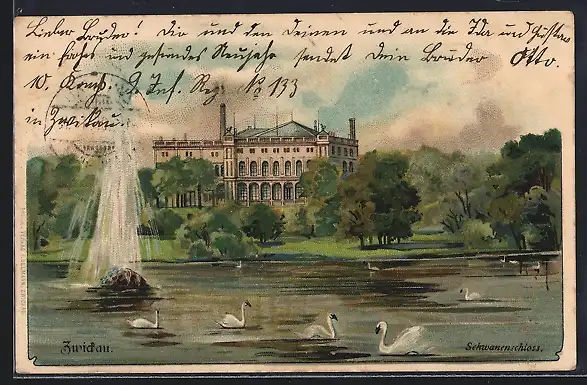 Lieber Bruder! Dir und den Deinen und an die Ida und Gustav
ein frohes und gesundes Neujahr sendet Dein Bruder Otto.
10. Komp. 9. Inf. Reg. No 133
in Zwickau.
Zwickau.
Schwanenschloss.